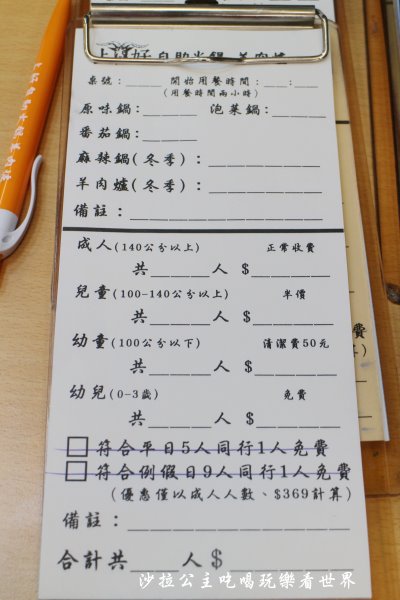 上好自助火鍋 羊肉爐
桌號：____ 開始用餐時間：__：__
(用餐時間兩小時)
原味鍋：____ 泡菜鍋：____
番茄鍋：____
麻辣鍋(冬季)：________
羊肉爐(冬季)：________
備註：____________
成人(140公分以上) 正常收費
共____人 $______
兒童(100-140公分以上) 半價
共____人 $______
幼童(100公分以下) 清潔費50元
共____人 $______
幼兒(0-3歲) 免費
共____人 $______
□ 符合平日5人同行1人免費
□ 符合例假日9人同行1人免費
(優惠僅以成人人數、$369計算)
備註：____________
合計共____人$________
沙拉公主吃喝玩樂看世界